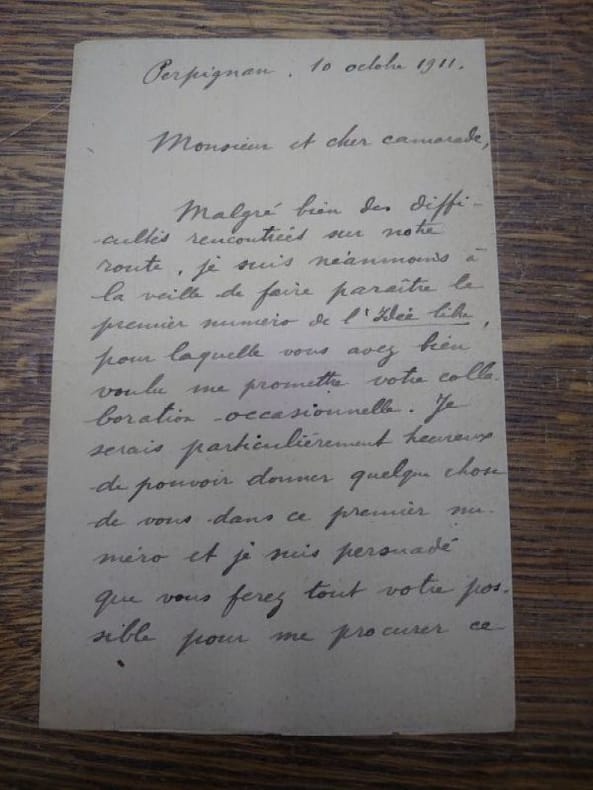 Perpignan, 10 octobre 1911.
Monsieur et cher camarade,
Malgré bien des diffi-
cultés rencontrées sur notre
route, je suis néanmoins à
la veille de faire paraître le
premier numéro de l'Idée libre,
pour laquelle vous avez bien
voulu me promettre votre colla-
boration occasionnelle. Je
serais particulièrement heureux
de pouvoir donner quelque chose
de vous dans ce premier nu-
méro et je suis persuadé
que vous ferez tout votre pos-
sible pour me procurer ce